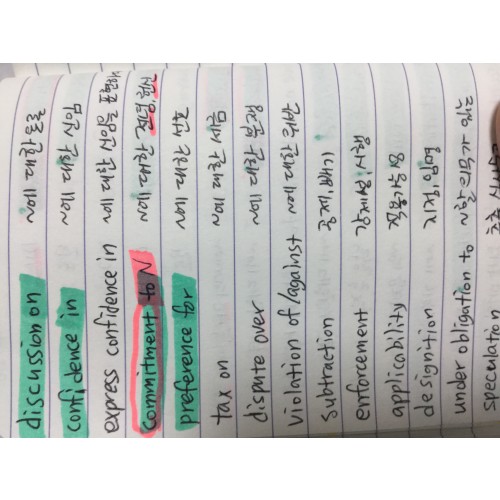 discussion on ~에 관해 토론
confidence in ~에 관해 믿음
express confidence in ~에 관해 믿음을 표하다
commitment to N ~에 관해 전념,헌신
preference for ~에 관해 선호
tax on ~에 관해 세금
dispute over ~에 관해 논쟁
violation of/against ~에 관해 위반
subtraction 공제,빼기
enforcement 강제,시행
applicability 적용가능성
designition 지정,임명
under obligation to ~할 의무가 있는
speculation